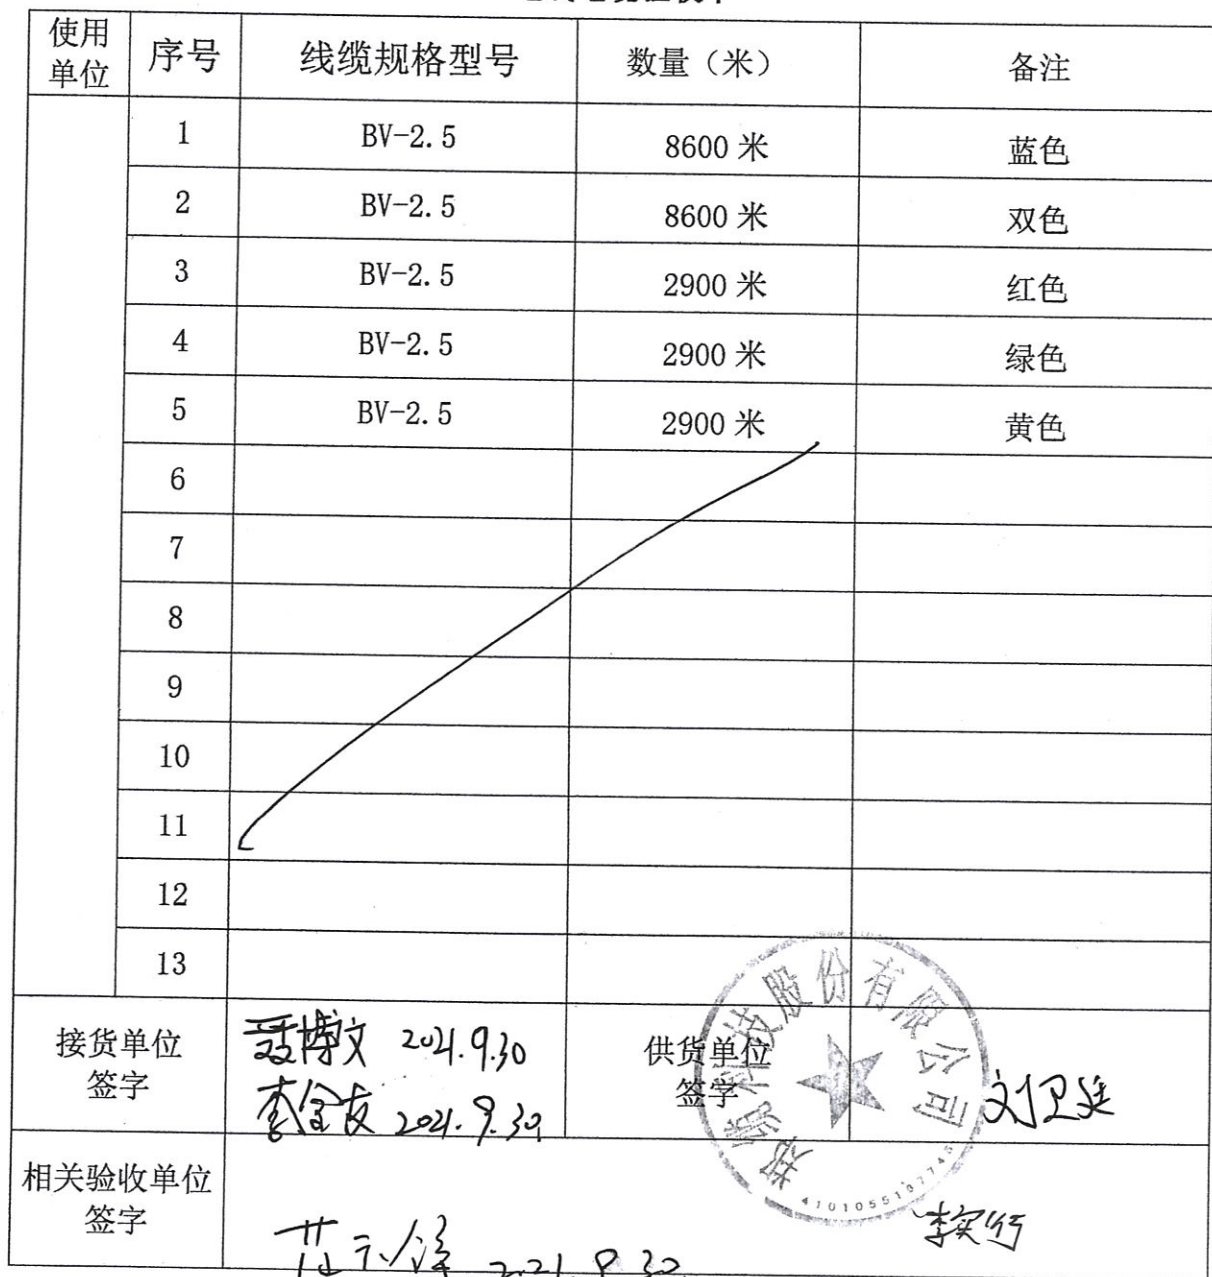 使用单位 序号 线缆规格型号 数量（米） 备注
1 BV-2.5 8600 米 蓝色
2 BV-2.5 8600 米 双色
3 BV-2.5 2900 米 红色
4 BV-2.5 2900 米 绿色
5 BV-2.5 2900 米 黄色
6
7
8
9
10
11
12
13
接货单位
签字
聂博文 2021.9.30
李金友 2021.9.30
供货单位
签字
郑缆科技股份有限公司
刘卫廷
相关验收单位
签字
2021.9.30